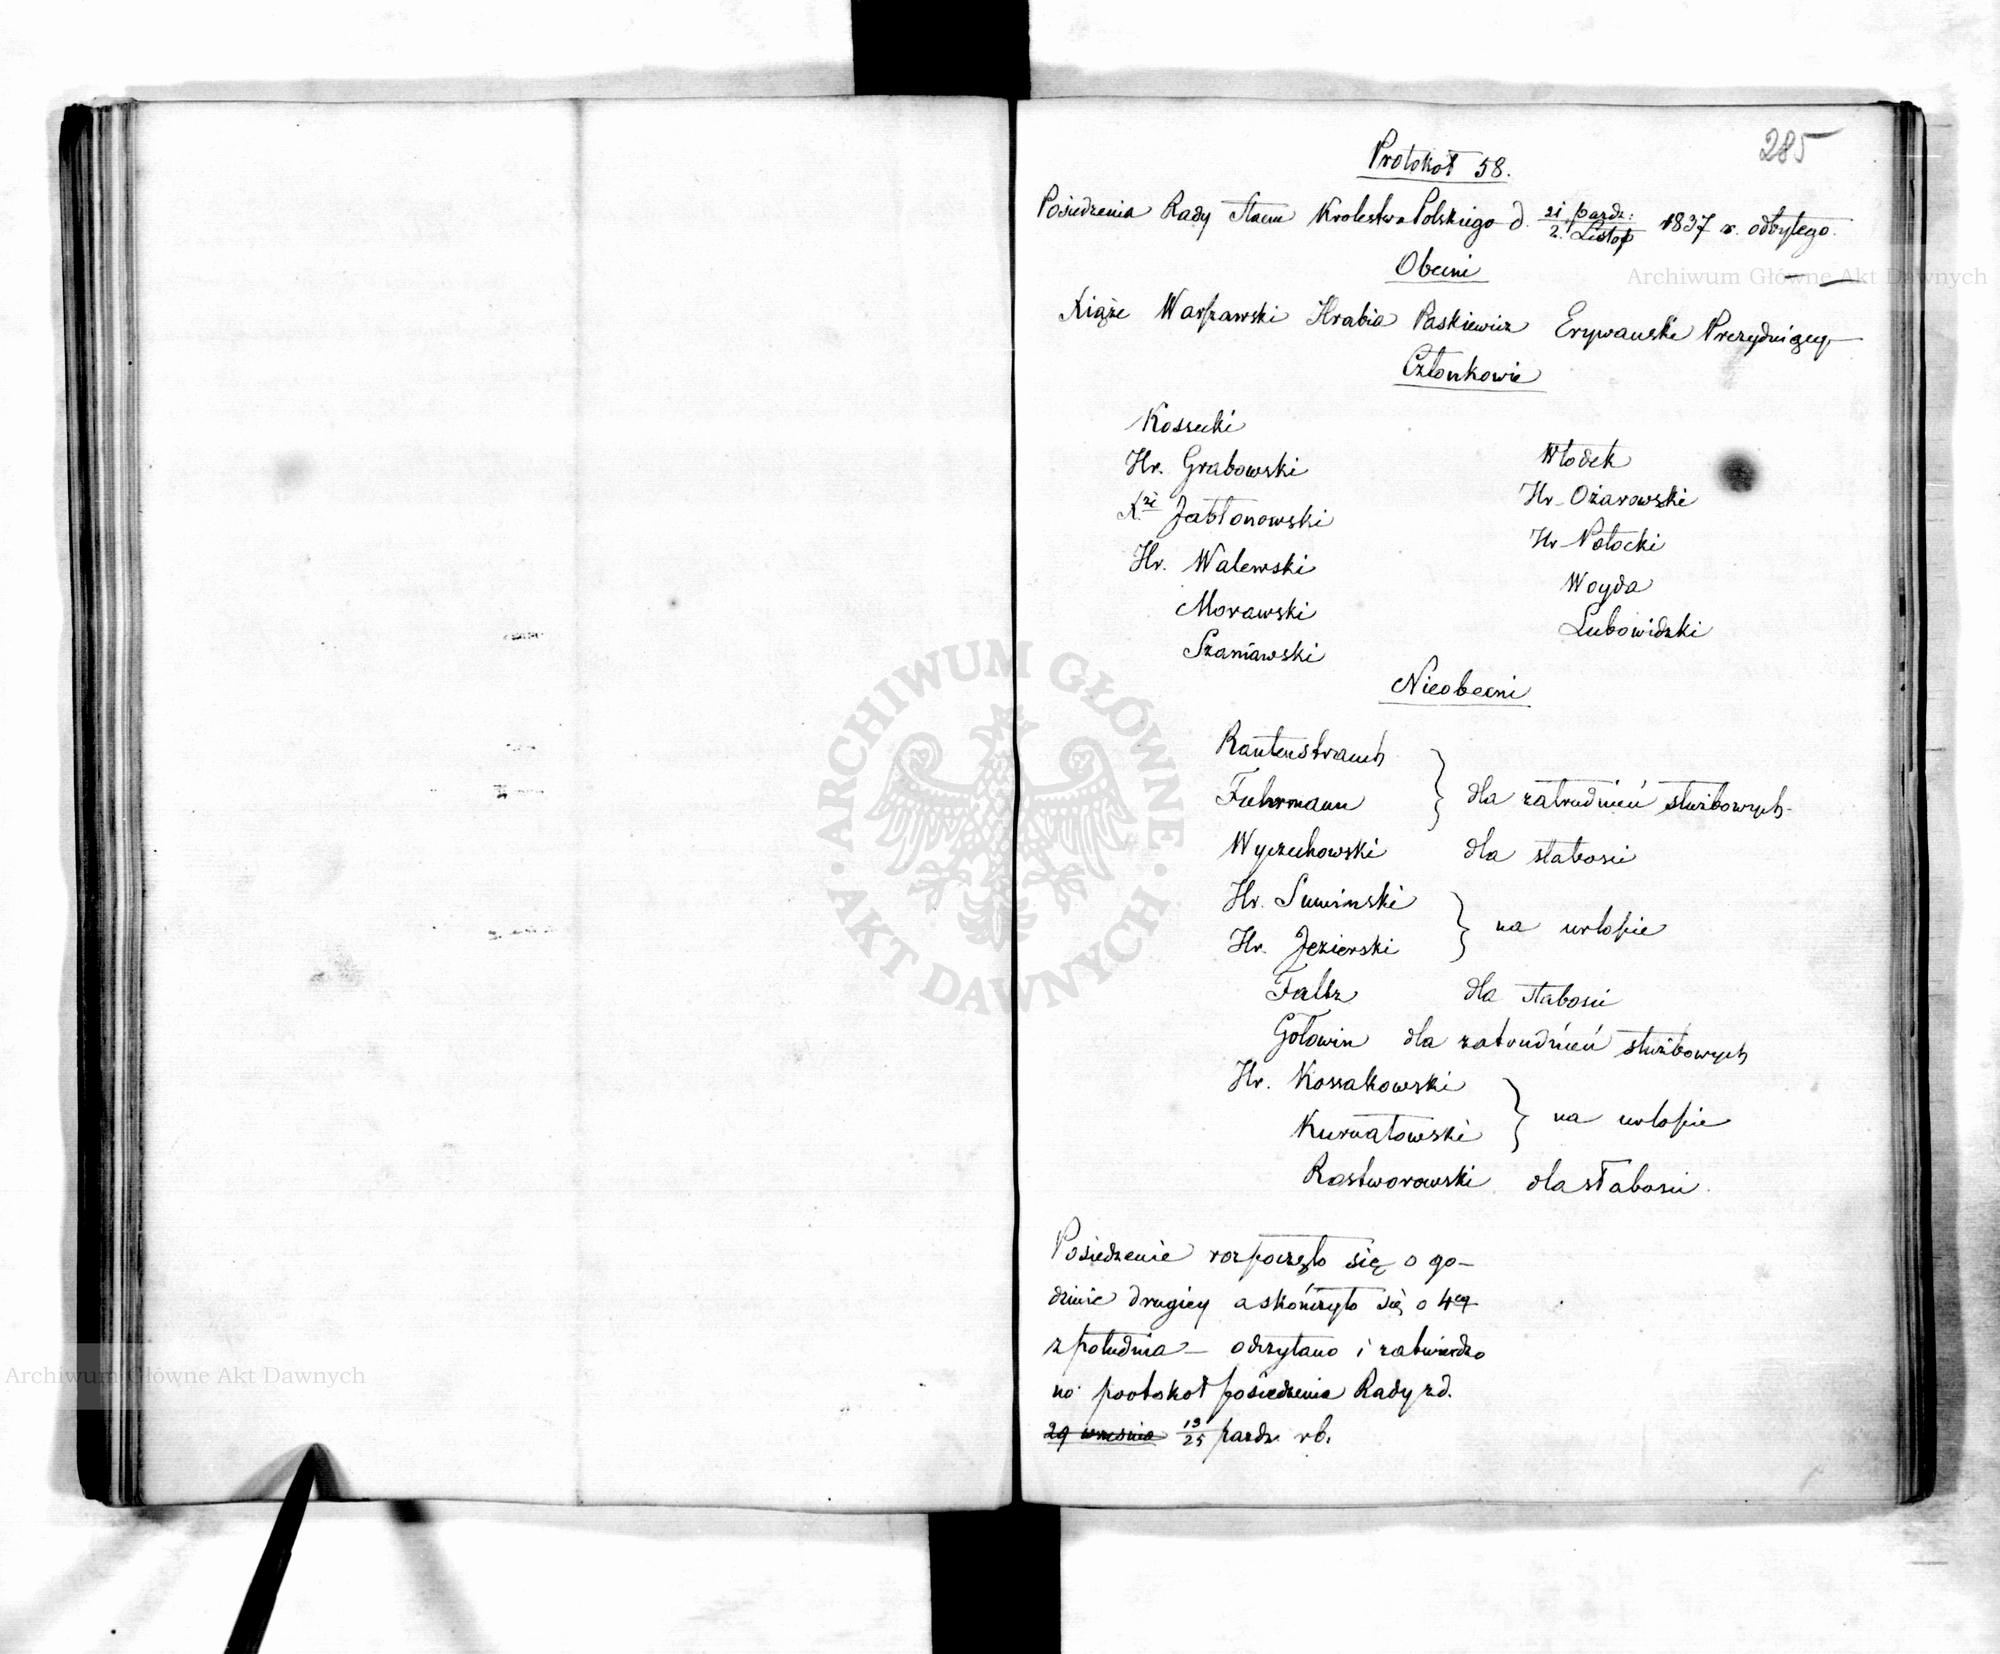 285
Protokoł 58.
Posiedzenia Rady Stanu Krolestwa Polskiego d. 21 pazdz: / 2. Listop 1837 r. odbytego.
Obecni
Xiąże Warszawski Hrabia Paskiewicz Erywański Prezydujący
Członkowie
Kossecki
Hr. Grabowski
X.że Jabłonowski
Hr. Walewski
Morawski
Szaniawski
Włodek
Hr. Ożarowski
Hr Potocki
Woyda
Lubowidzki
Nieobecni
Rautenstrauch
Fuhrmann
dla zatrudnień służbowych
Wyczechowski dla słabosci
Hr. Suminski
Hr. Jezierski
na urlopie
Faltz dla słabosci
Gołowin dla zatrudnień służbowych
Hr. Kossakowski
Kurnatowski
na urlopie
Rostworowski dla słabosci
Posiedzenie rozpoczęło się o go-
dzinie drugiey a skończyło się o 4ey
z południa – odczytano i zatwierdzo
no protokoł posiedzenia Rady z d.
29 wrzesnia 13/25 pazdz. rb.
Archiwum Główne Akt Dawnych
Archiwum Główne Akt Dawnych
ARCHIWUM GŁÓWNE · AKT DAWNYCH ·